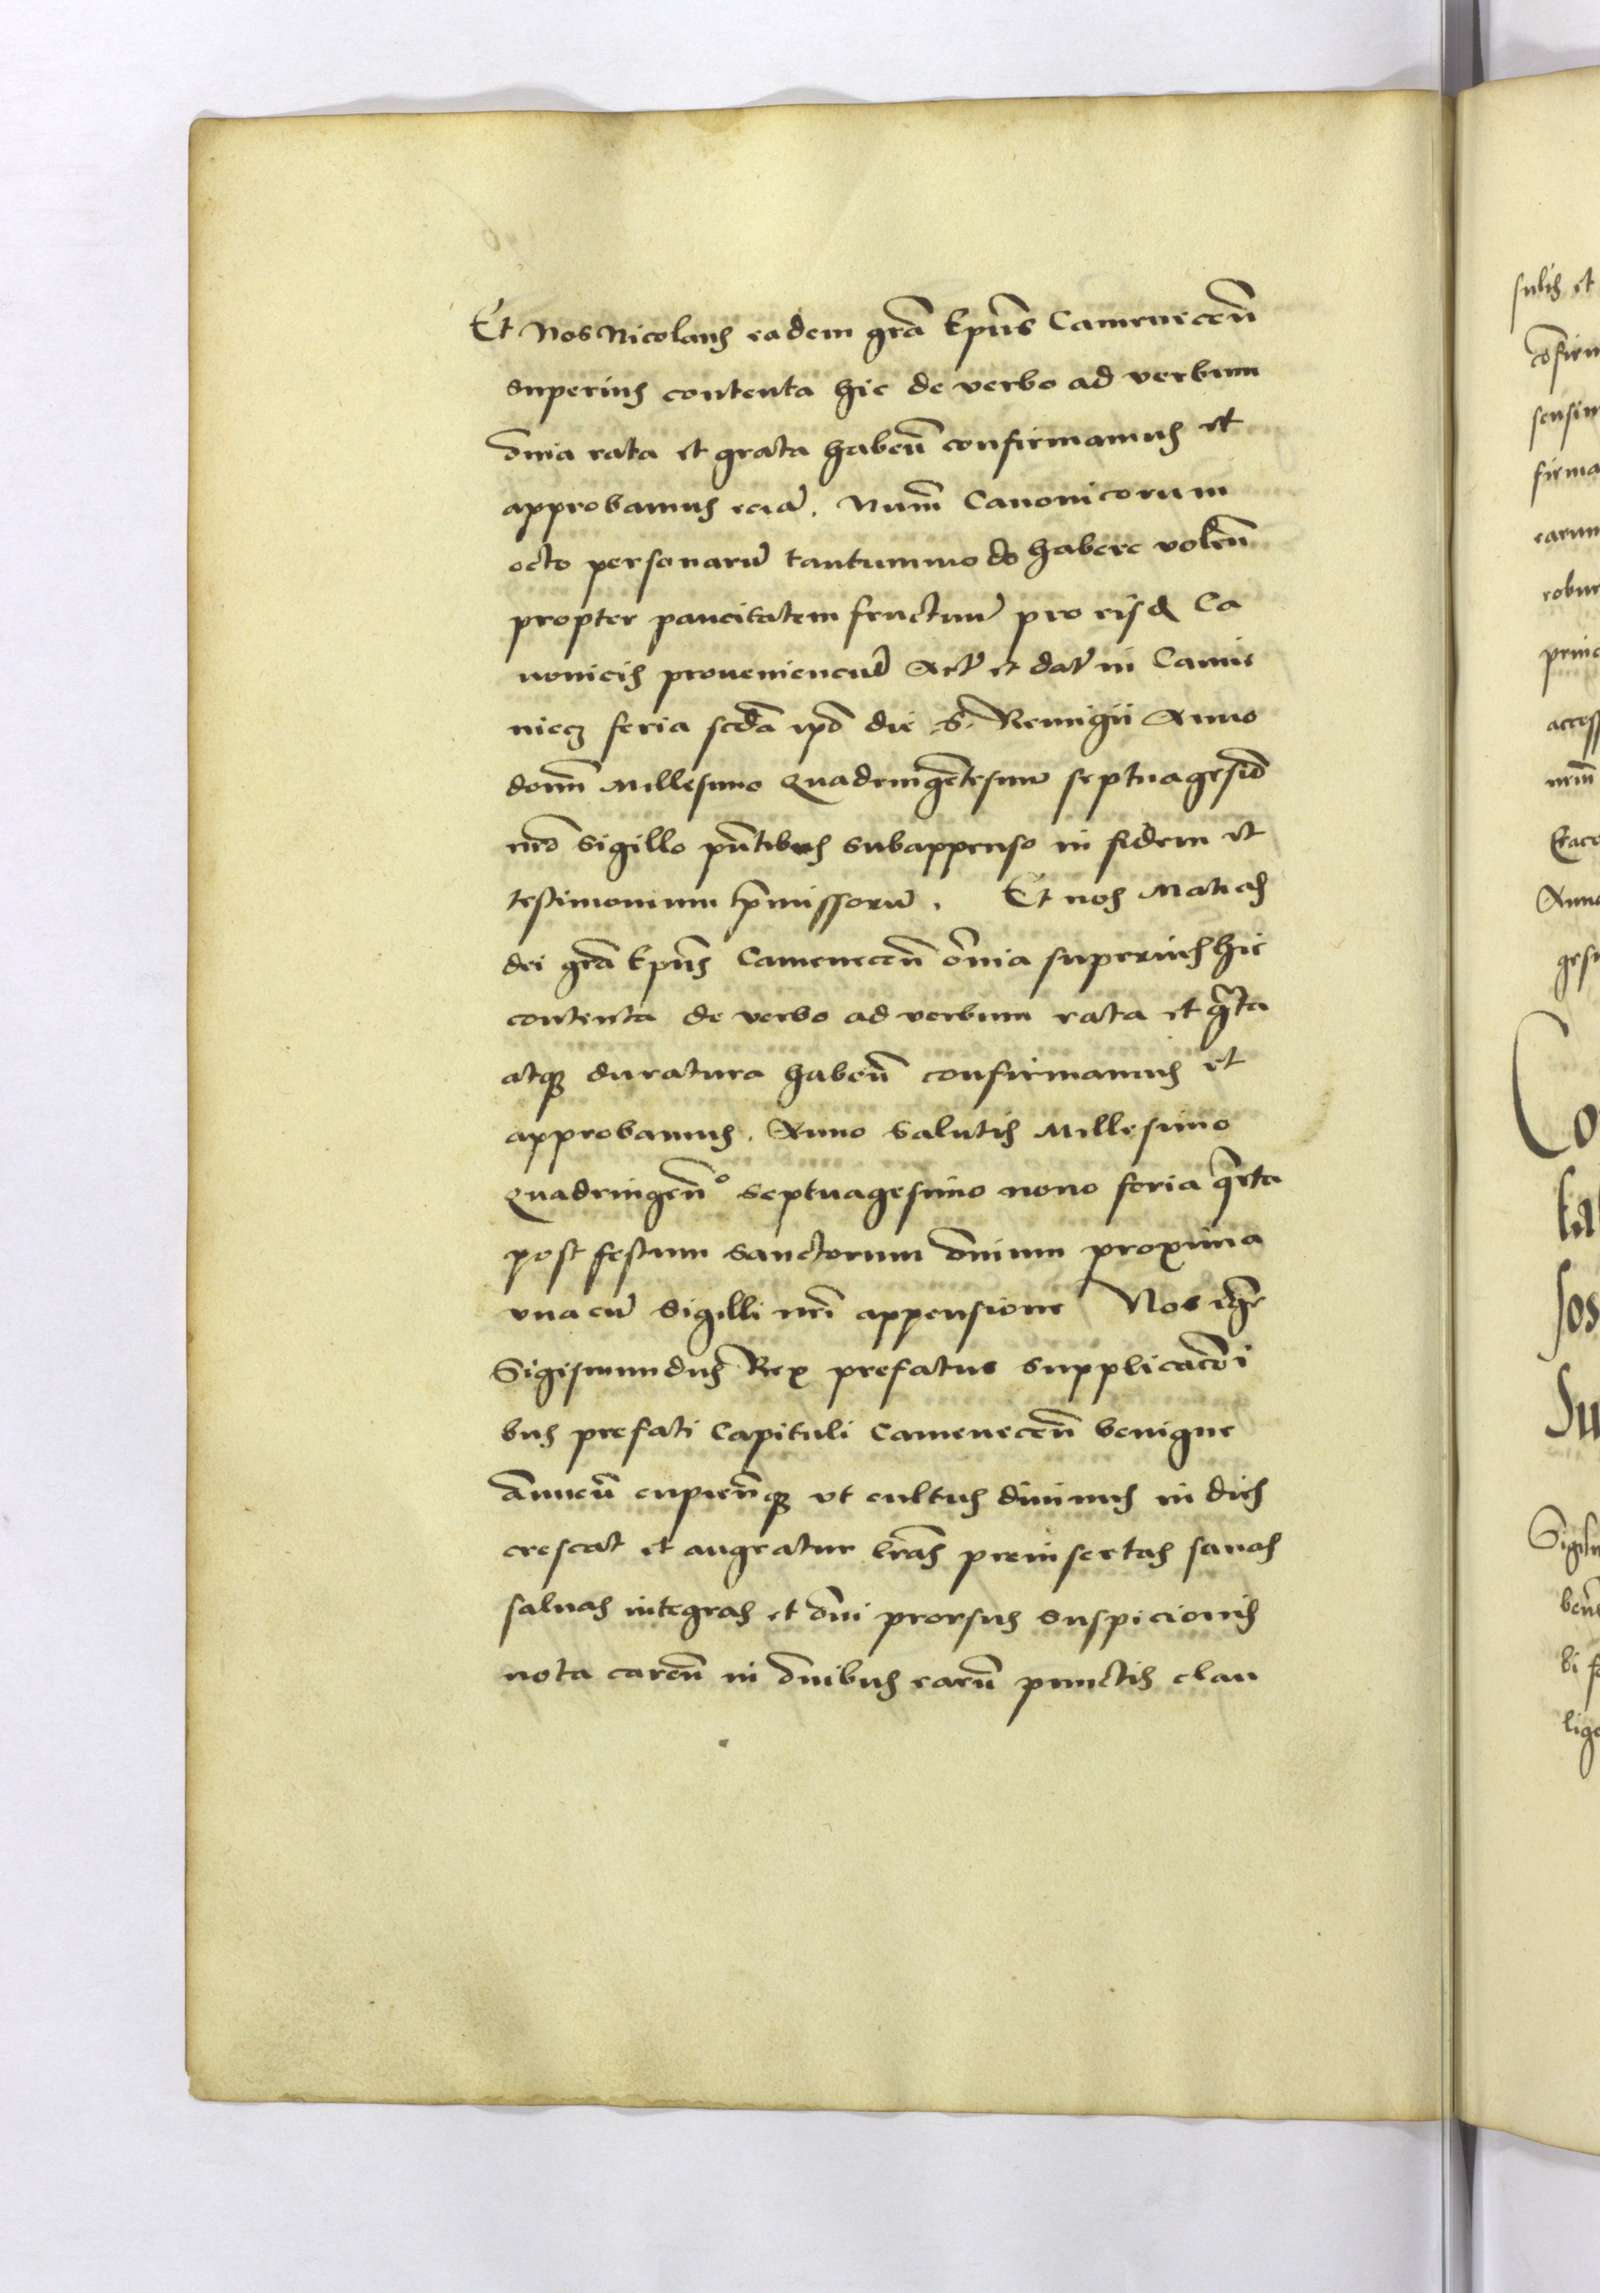 Et Nos Nicolaus eadem grã Ep̃us Cameneceñ
superius contenta hic de verbo ad verbum
om̃ia rata et grata habeñ confirmamus et
approbamus eciã. Num̃ Canonicorum
octo personarũ tantummodo habere voleñ
propter paucitatem fructuũ pro eisd Ca
nonicis proueniencũ Actũ et datũ in Camie
niecz feria scd̃a ip̃o die S. Remigii Anno
domĩ Millesimo Quadringẽtesimo septuagesiõ
nr̃o Sigillo pñtibus subappenso in fidem et
testimonium p̃missorũ. Et nos Matias
dei grã Ep̃us Cameneceñ om̃ia superius hic
contenta de verbo ad verbum rata et gᵃta
atqꝫ duratura habeñ confirmamus et
approbamus. Anno Salutis Millesimo
Quadringeñº Septuagesimo nono feria qᵃrta
post festum Sanctorum om̃ium proxima
vna cũ Sigilli nr̃i appensione Nos igr̃
Sigismundus Rex prefatus supplicacõi
bus prefati Capituli Cameneceñ benigne
Annueñ cupieñqꝫ vt cultus diuinus in dies
crescat et augeatur lr̃as preinsertas sanas
saluas integras et om̃i prorsus suspicionis
nota careñ in om̃ibus earũ punctis clau
sulis et